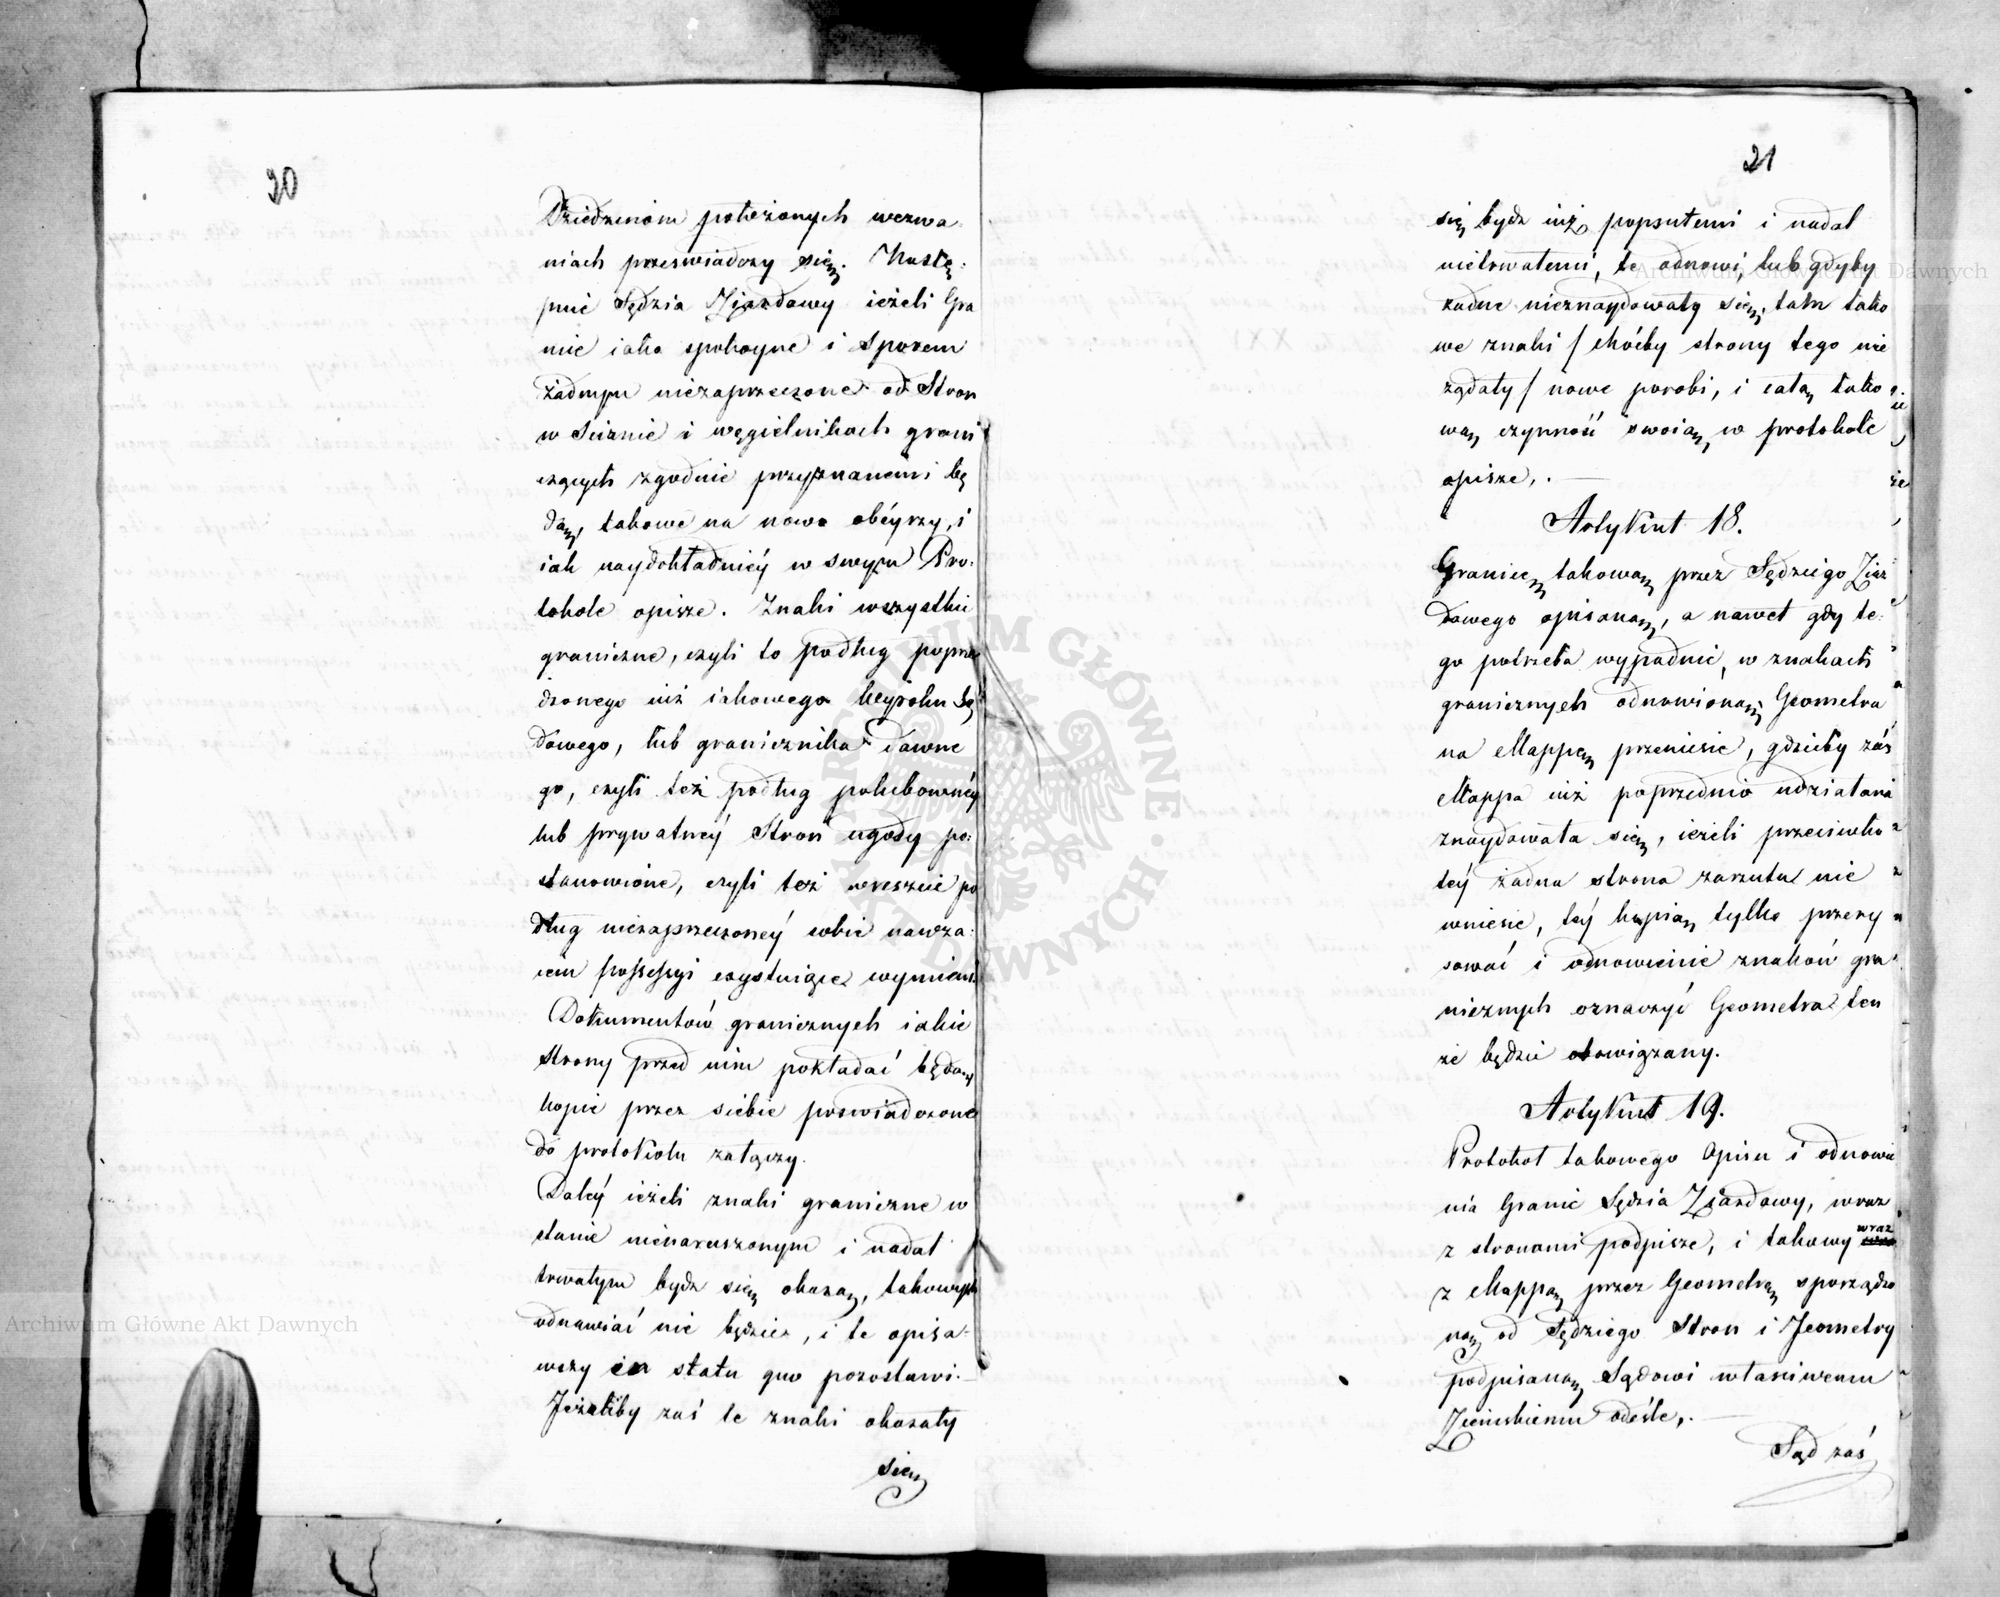 20
Dziedzinóm położonych wezwa-
niach przeswiadczy sięn. Nastę-
pnie Sędzia Zjazdowy ieżeli Gra
nice iako spokoyne i Sporem
żadnym niezaprzeczone od Stron
w Scianie i węgielnikach grani
czących zgodnie przyznanemi bę
dąn, takowe na nowo obéyrzy, i
iak naydokładniéy w swym Pro-
tokole opisze. Znaki wszystkie
graniczne, czyli to podług poprze
dzonego iuż iakowego wyroku Są
dowego, lub graniczniká dawne
go, czyli też podług polubownéy
lub prywatnéy Stron ugody po-
stanowione, czyli też wreszcie po
dług niezaprzeczonéy sobie nawza-
iem possessyi exystuiące wymieni.
Dokumentów granicznych iakie
strony przed nim pokładać będąn
kopie przez siébie poswiadczone
do protokółu załączy.
Daléy ieżeli znaki graniczne w
stanie nienaruszonym i nadal
trwałym bydz sięn okaząn, takowych
odnawiać nie będzie, i te opisa-
wszy in statu quo pozostawi.—
Jeżeliby zaś te znaki okazały
sięn
21
sięn bydz iuż popsutemi i nadal
nietrwałemi, te odnowi, lub gdyby
żadne nieznaydowały sięn, tam tako
we znaki / chóćby strony tego nie
żądały / nowe porobi, i całąn tako
wąn czynność swoiąn w protokole
opisze,.—
Artykuł 18.
Granicęn takowąn przez Sędziego Ziaz
dowego opisanąn, a nawet gdy te-
go potrzeba wypadnie, w znakach
granicznych odnowionąn Geometra
na Mappęn przeniesie, gdzieby zaś
Mappa iuż poprzednio udziałana
znaydowała sięn, ieżeli przeciwko
téy żadna strona zarzutu nie
wniesie, téy kopiąn tylko przery
sować i odnowienie znaków gra
nicznych oznaczyć Geometra ten
że będzie obowiązany.
Artykuł 19.
Protokół takowego Opisu i odnowie
nia Granic Sędzia Ziazdowy, wraz
z stronami podpisze, i takowy wraz
z Mappąn przez Geometręn sporządzo
nąn od Sędziego Stron i Jeometry
podpisanąn Sądowi właściwemu
Ziemskiemu odeśle,.—
Sąd zaś